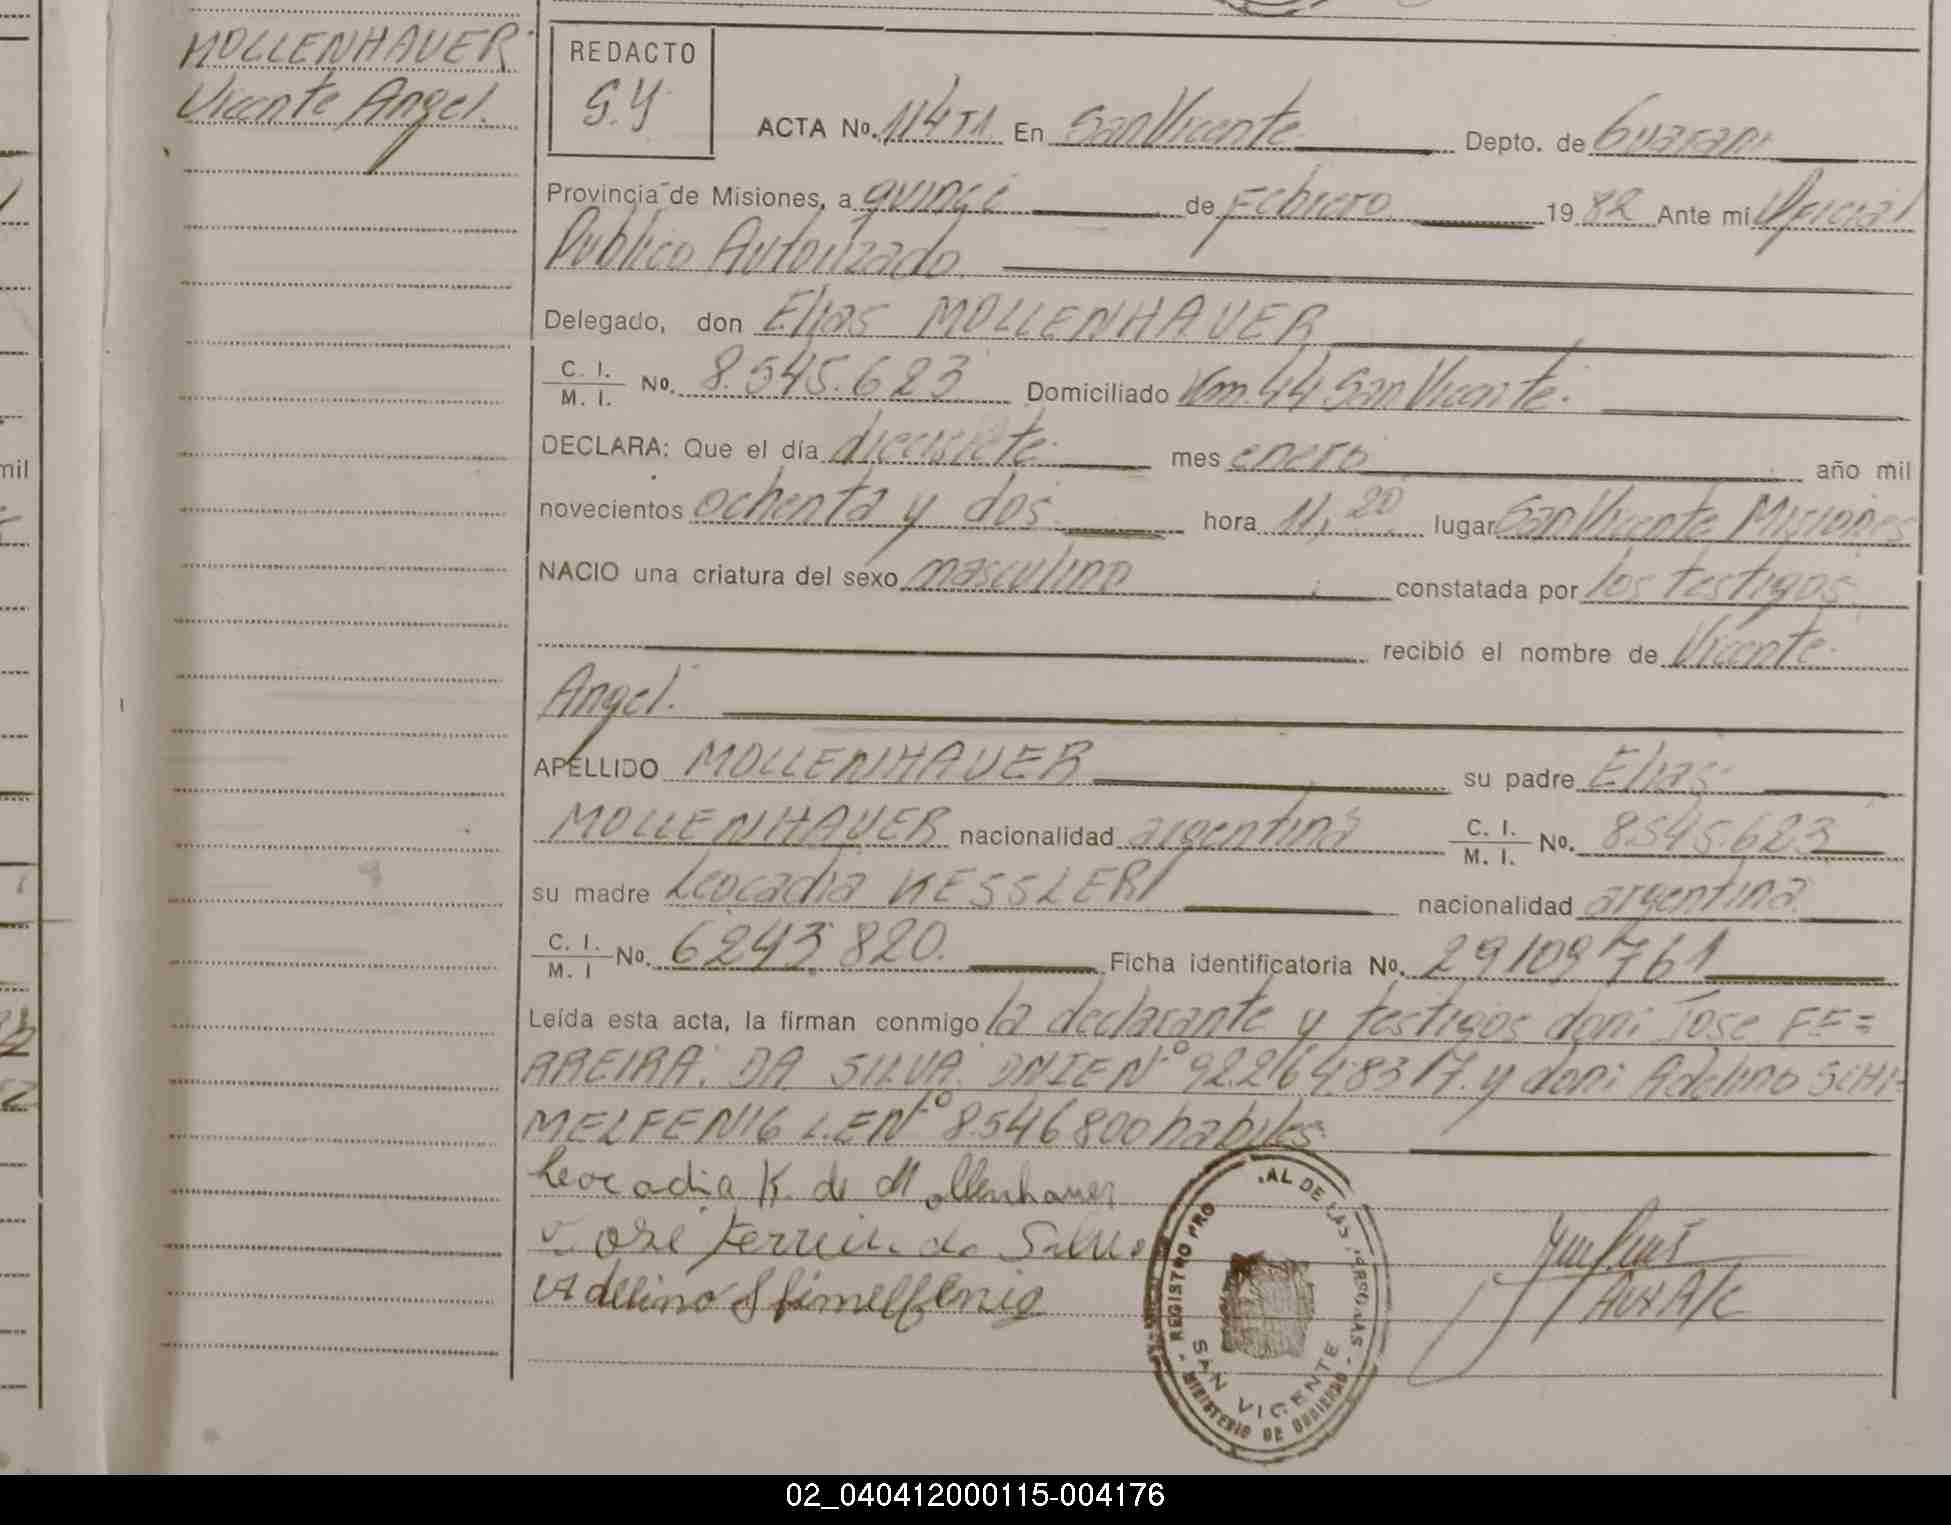 MOLLENHAUER
Vicente Angel.
REDACTO
S.Y
ACTA No. 114 T1 En San Vicente Depto. de Guarani
Provincia de Misiones, a quince de Febrero 1982 Ante mi Oficial
Publico Autorizado.
Delegado, don Elias MOLLENHAUER
C. I.
M. I. No. 8.545.623 Domiciliado Km. 44 San Vicente.
DECLARA: Que el día diecisiete mes enero año mil
novecientos ochenta y dos hora 11,20 lugar San Vicente Misiones
NACIO una criatura del sexo masculino constatada por los testigos
recibió el nombre de Vicente
Angel.
APELLIDO MOLLENHAUER su padre Elias
MOLLENHAUER nacionalidad argentina C. I.
M. I. No. 8.545.623
su madre Leocadia KESSLER nacionalidad argentina
C. I.
M. I No. 6243 820. Ficha identificatoria No. 29109761
Leída esta acta, la firman conmigo la declarante y testigos don: Jose FE=
RREIRA DA SILVA DNIE Nº 92.264.837. y don: Adelino SCHI=
MELFENIG L.E Nº 8546800 habiles.
Leocadia K. de Mollenhauer
José Ferreira da Silva
Adelino Shimelfenig
Aux A/C
REGISTRO PRO AL DE LAS PERSONAS
SAN VICENTE
MINISTERIO DE GOBIERNO
mil
02_040412000115-004176